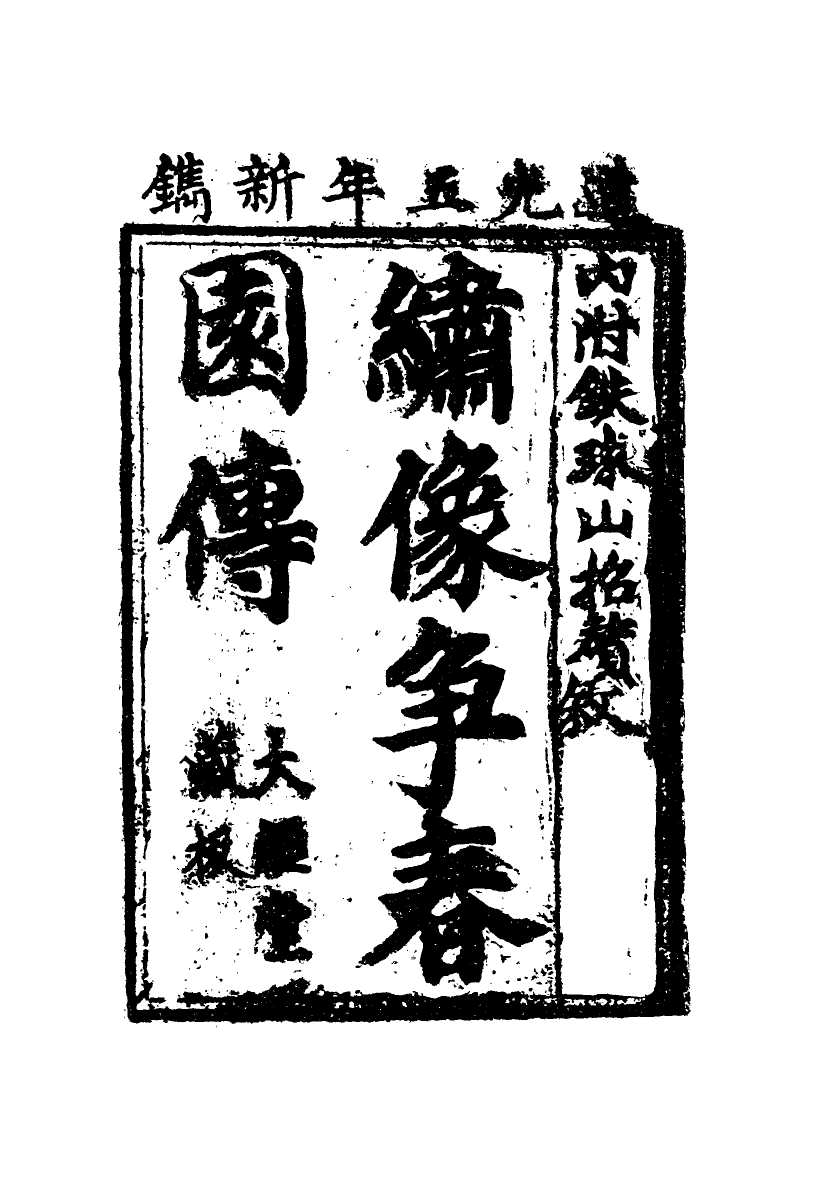 道光五年新鐫
內附鉄球山招贅紋
繡像争春
園傳
大
藏板